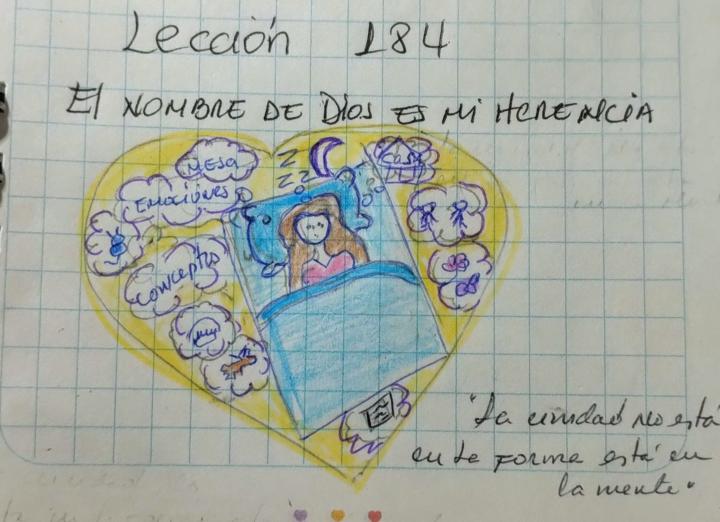 Lección 184
El NOMBRE DE DIOS ES MI HERENCIA
MESA
EMOCIONES
conceptos
Z Z Z
CASA
"La unidad no está
en la forma está en
la mente"